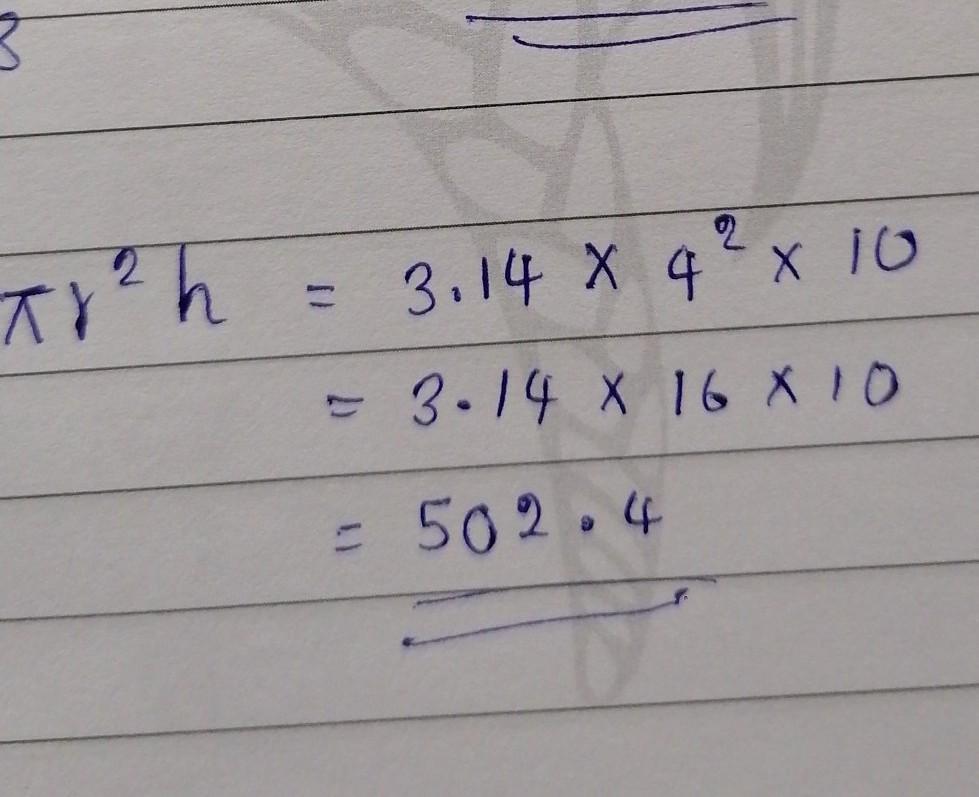 3
πr²h = 3.14 × 4² × 10
= 3.14 × 16 × 10
= 502.4